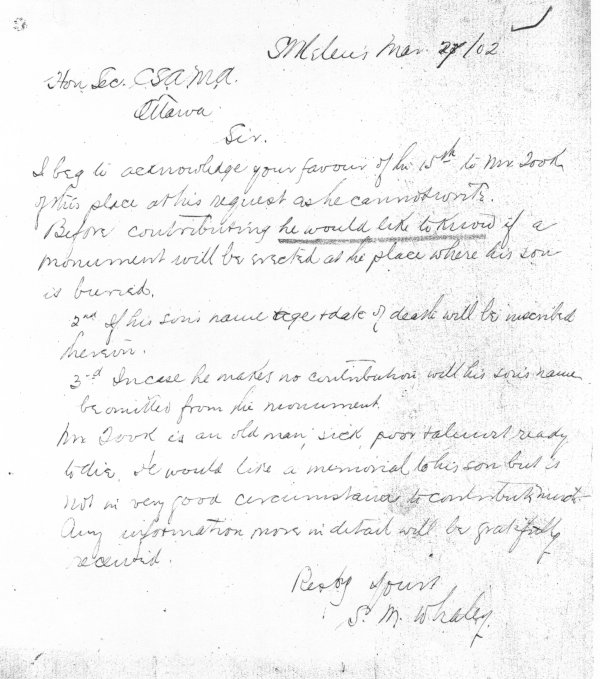 St Helens Mar. 27/02
Hon Sec. C.S.A.M.A.
Ottawa
Sir.
I beg to acknowledge your favour of the 15th to Mr. Took
of this place at his request as he cannot write.
Before contributing he would like to know if a
monument will be erected at the place where his son
is buried.
2nd If his son's name age + date of death will be inscribed
herein.
3rd In case he makes no contribution will his son's name
be omitted from the monument
Mr Took is an old man, sick, poor + almost ready
to die. He would like a memorial to his son but is
not in very good circumstances to contribute much.
Any information more in detail will be gratefully
received.
Resby Yours
S. M. Whaley